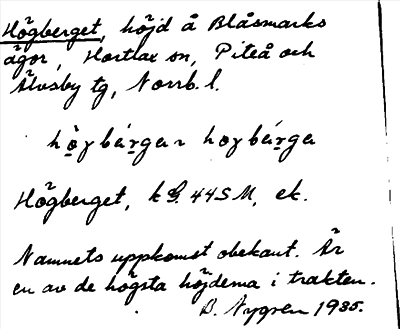 Högberget, höjd å Blåsmarks
ägor, Hortlax sn, Piteå och
Älvsby tg, Norrb. l.
Högberget, k 44 SM, ek.
Namnets uppkomst obekant. Är
en av de högsta höjderna i trakten.
B. Nygren 1935.